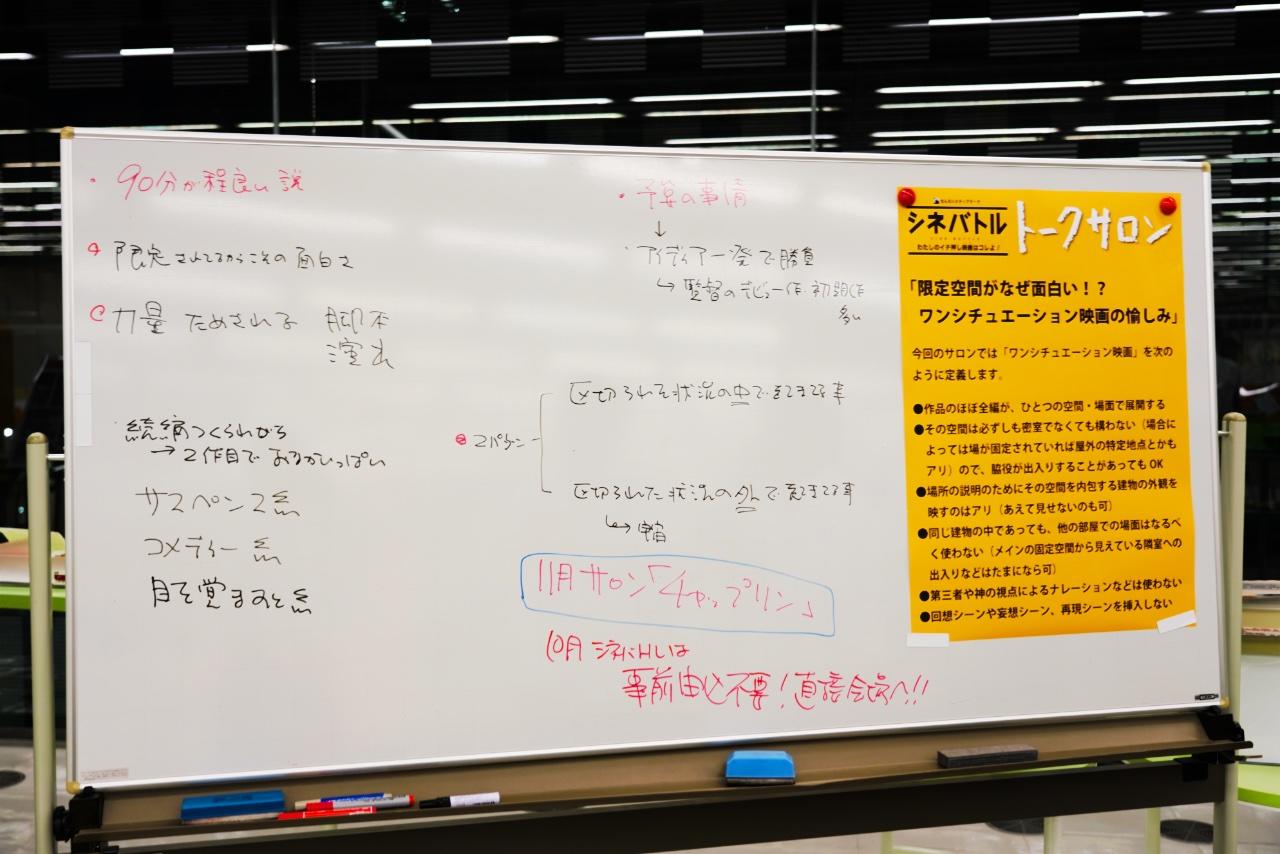 ・90分が程良い説
限定されてるからこその面白さ
力量 ためされる 脚本
演出
続編つくられがち
→2作目で
サスペンス系
コメディー系
目を覚ますと系
・予算の事情
↓
・アイディア一発で勝負
↳ 監督のデビュー作・初期作
多い
2パターン
区切られた状況の中で起きてる事
区切られた状況の外で起きてる事
↳ 宇宙
11月サロン「チャップリン」
10月シネバトルは
事前申込不要!直接会場へ!!
シネバトル
わたしのイチ押し映画はコレよ!
トークサロン
「限定空間がなぜ面白い!?
ワンシチュエーション映画の愉しみ」
今回のサロンでは「ワンシチュエーション映画」を次の
ように定義します。
●作品のほぼ全編が、ひとつの空間・場面で展開する
●その空間は必ずしも密室でなくても構わない(場合に
よっては場が固定されていれば屋外の特定地点とかも
アリ)ので、脇役が出入りすることがあってもOK
●場所の説明のためにその空間を内包する建物の外観を
映すのはアリ(あえて見せないのも可)
●同じ建物の中であっても、他の部屋での場面はなるべ
く使わない(メインの固定空間から見えている隣室への
出入りなどはたまになら可)
●第三者や神の視点によるナレーションなどは使わない
●回想シーンや妄想シーン、再現シーンを挿入しない